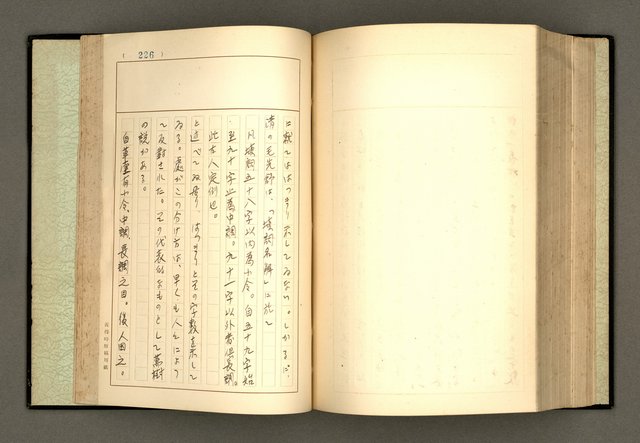 (226)
に就てははつきり示してゐない。しかるに、
清の毛先舒は、「填詞名解」に於て
凡填詞五十八字以内為小令。自五十九字始
至九十字止為中調。九十一字以外者俱長調。
此古人定例也。
と述べて居り、はつきりとその字数を示して
ゐる。處がこの分け方は、早くも人によつ
て反対された。その代表的なものとして萬樹
の説がある。
自草堂有小令、中調、長調之目。後人因之。